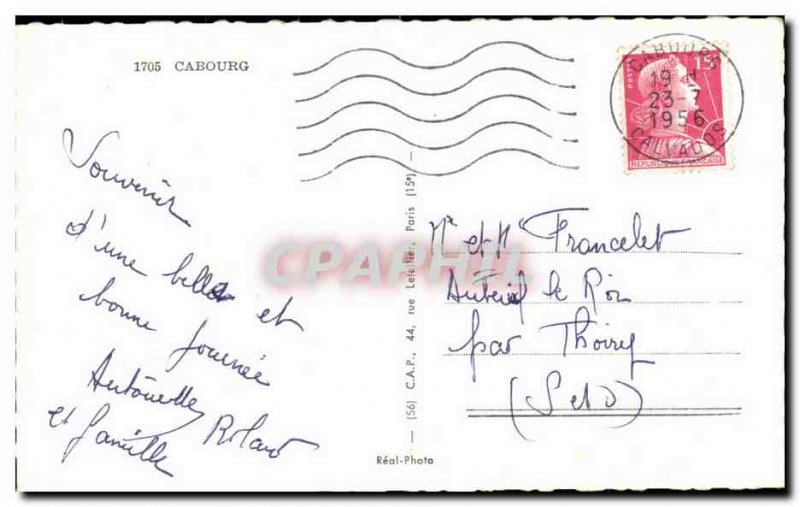 1705 CABOURG
CABOURG
19 H
23-7
1956
CALVADOS
15F
POSTES
REPUBLIQUE FRANÇAISE
Souvenir
d'une belle et
bonne journée
Antoinette Roland
et famille
Mr et Me Francelet
Auteuil le Roi
par Thoiry
(S et O)
(56) C.A.P., 44, rue Letellier, Paris (15e)
Réal-Photo
CPAPHIL